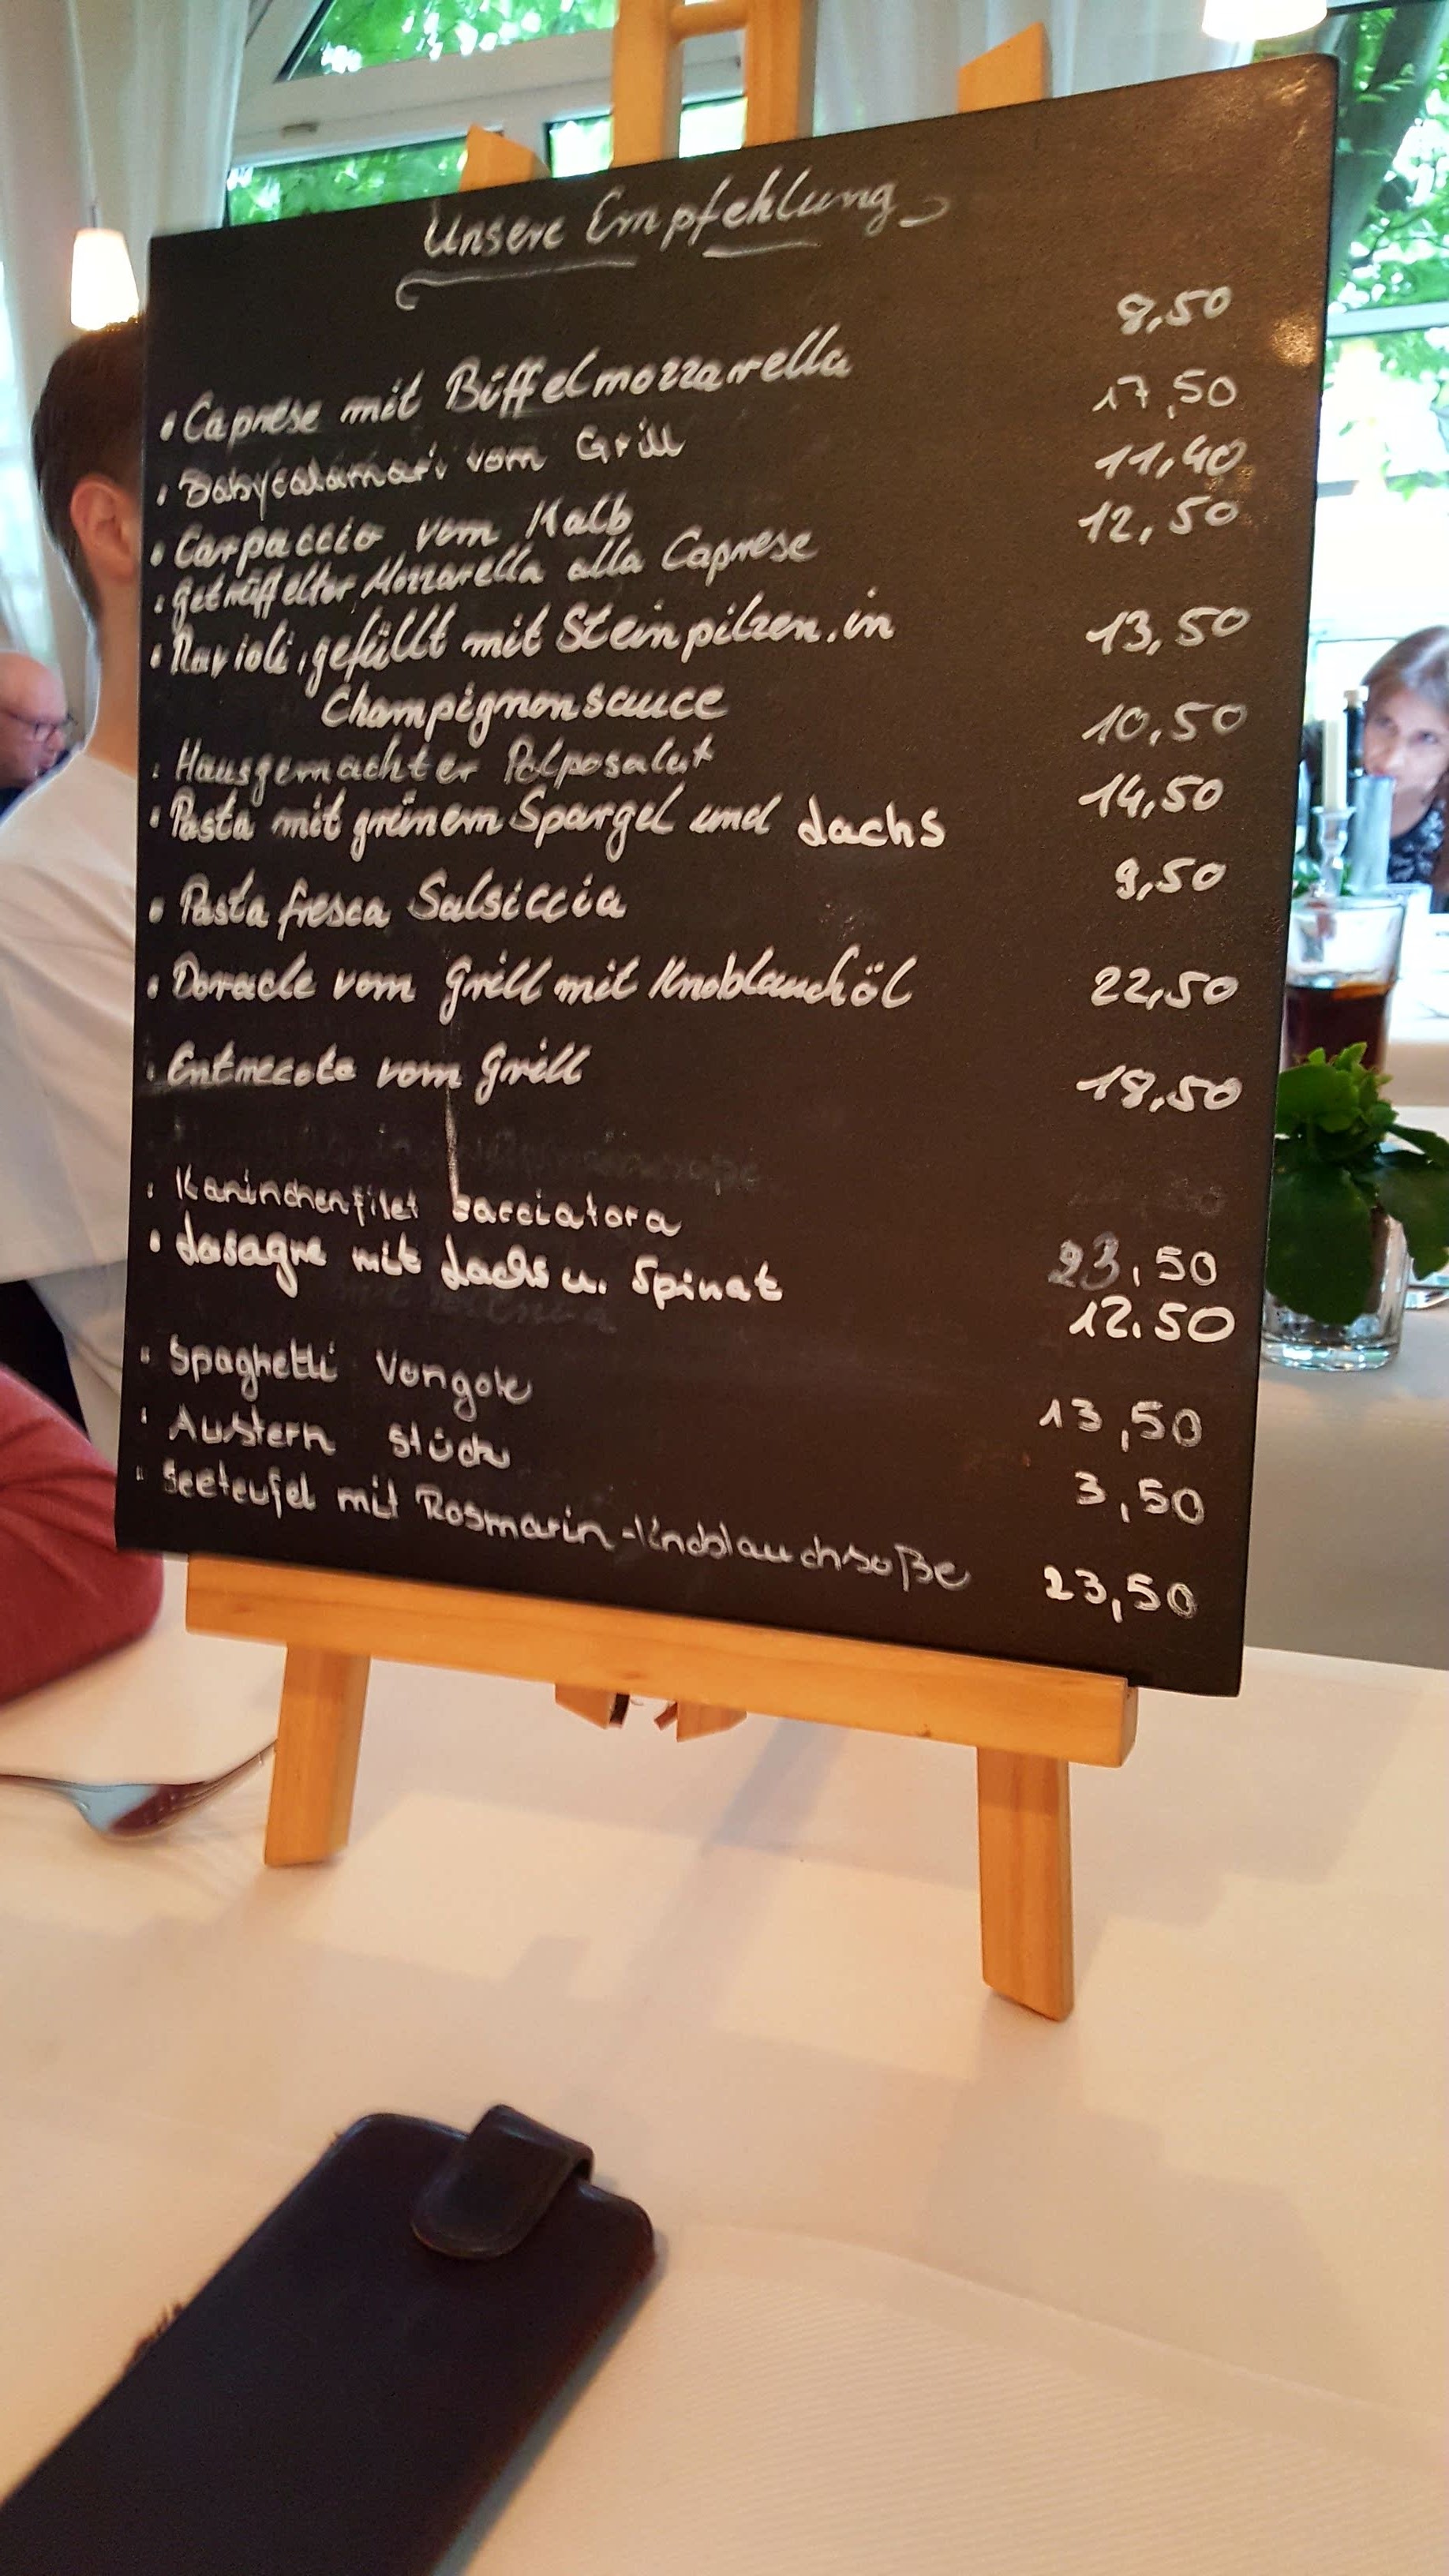 Unsere Empfehlung
• Caprese mit Büffelmozzarella 8,50
• Babycalamari vom Grill 17,50
• Carpaccio vom Kalb 11,40
• Getrüffelter Mozzarella alla Caprese 12,50
• Ravioli, gefüllt mit Steinpilzen, in
Champignonsauce 13,50
• Hausgemachter Polposalat 10,50
• Pasta mit grünem Spargel und Lachs 14,50
• Pasta fresca Salsiccia 9,50
• Dorade vom Grill mit Knoblauchöl 22,50
• Entrecote vom Grill 18,50
• Kaninchenfilet cacciatora 23,50
• Lasagne mit Lachs u. Spinat 12.50
• Spaghetti Vongole 13,50
• Austern Stück 3,50
• Seeteufel mit Rosmarin-Knoblauchsoße 23,50